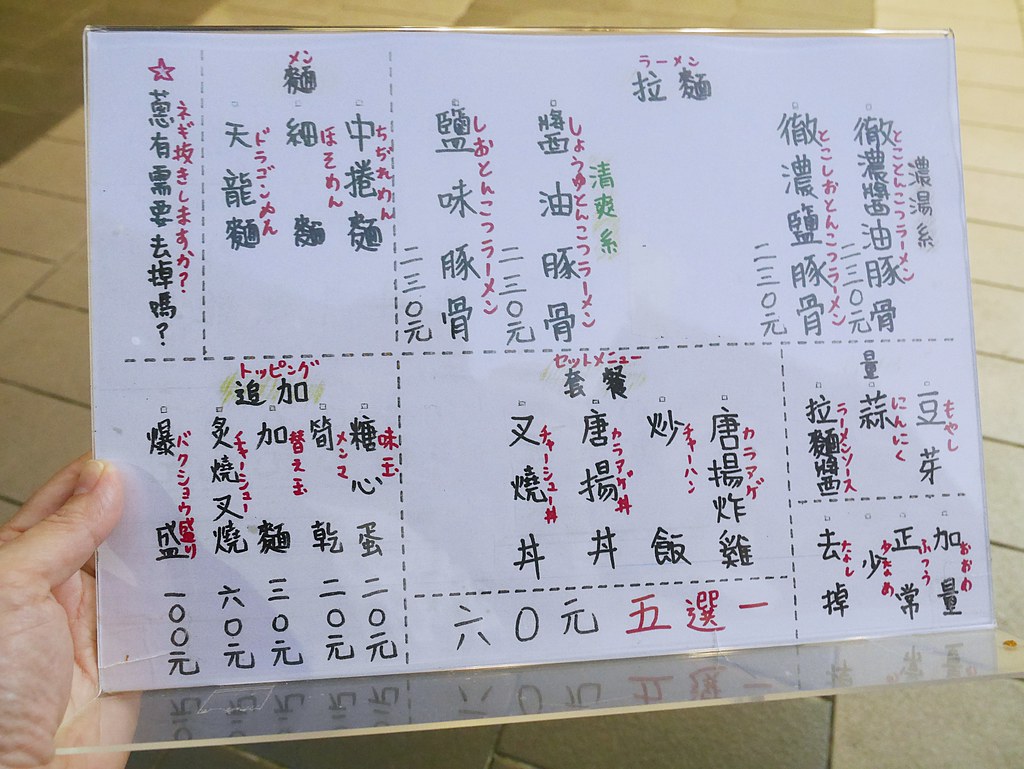 拉麵
ラーメン
濃湯系
徹濃醬油豚骨
とことんこつラーメン
二三〇元
徹濃鹽豚骨
とこしおとんこつラーメン
二三〇元
清爽系
醬油豚骨
しょうゆとんこつラーメン
二三〇元
鹽味豚骨
しおとんこつラーメン
二三〇元
麵
メン
中捲麵
ちぢれめん
細麵
ほそめん
天龍麵
ドラゴンめん
☆蔥有需要去掉嗎?
ネギ抜きしますか?
量
豆芽
もやし
蒜
にんにく
拉麵醬
ラーメンソース
加量
おおめ
正常
ふつう
少
少なめ
去掉
なし
套餐
セットメニュー
唐揚炸雞
カラアゲ
炒飯
チャーハン
唐揚丼
カラアゲ丼
叉燒丼
チャーシュー丼
六〇元 五選一
追加
トッピング
糖心蛋
味玉
二〇元
筍乾
メンマ
二〇元
加麵
替え玉
三〇元
炙燒叉燒
チャーシュー
六〇元
爆盛
バクショウ盛り
一〇〇元